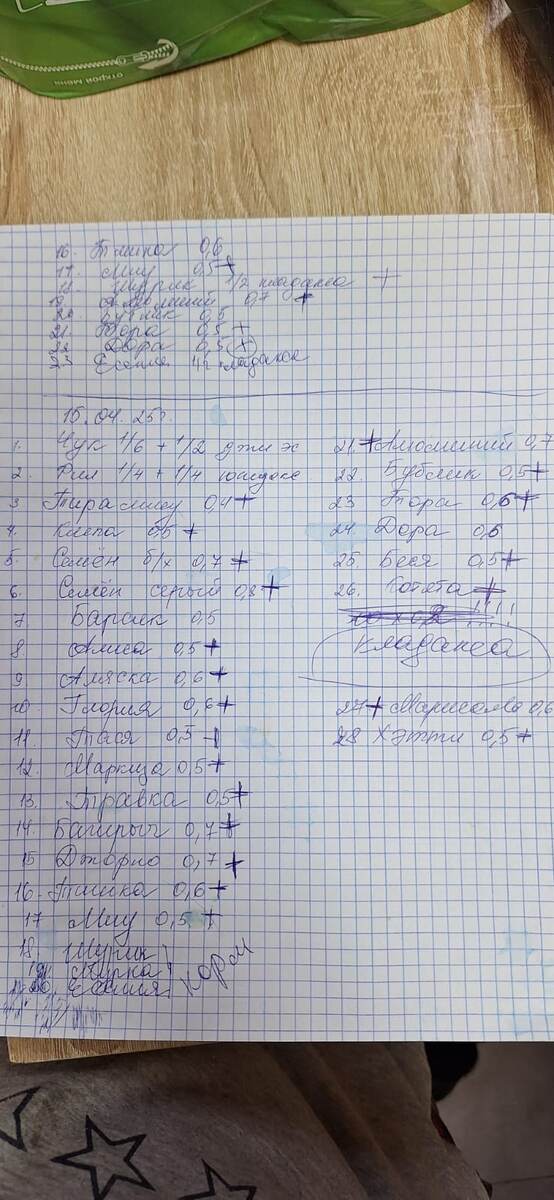 ОТКРОЙ МЕНЯ
16. Тишка 0,6
17. Миу 0,5+
18. Шурик 1/2 кладакса +
19. Алюминий 0,7 +
20. 0,5
21. Тора 0,5 +
22 Дора 0,5 +
23 Есения
15.04.25г.
1. Чук 1/6 + 1/2
2. Рил 1/4 + 1/4
3 Тирамису 0,4+
4. Кнопа 0,5 +
5. Семён б/х 0,7 +
6. Семён серый 0,8 +
7 Барсик 0,5
8 Алиса 0,5+
9 Аляска 0,6+
10. Глория 0,6+
11 Тася 0,5 +
12. Маркиза 0,5+
13. Травка 0,5+
14. Багирыч 0,7+
15 Джорно 0,7 +
16. Тишка 0,6+
17 Миу 0,5 +
18 Шурик
19. Мурка
20. Есения
корм
21. + Алюминий 0,7
22. Бублик 0,5+
23 Тора 0,6+
24. Дора 0,6
25. Беся 0,5+
26. Котёта +
!!!!
кладакса
27 + Марисоль 0,6
28 Хэтти 0,5+